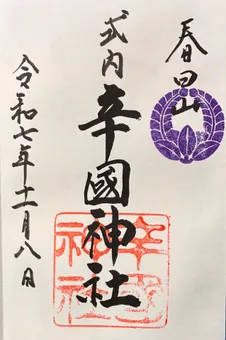 春日山
式内
辛國神社
令和七年十一月八日
辛國
神社